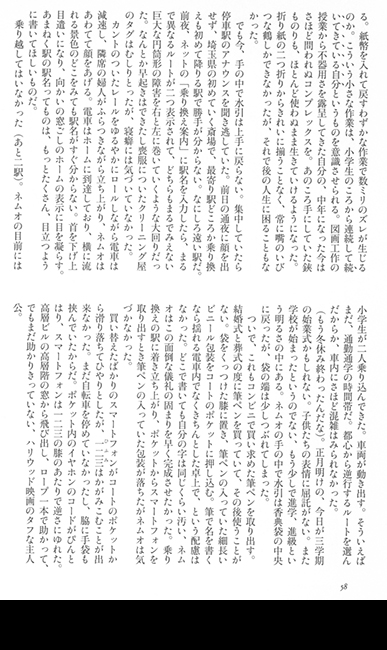 る。紙幣を入れて戻すわずかな作業で数ミリのズレが生じる
のか。そういう小さな作業は、小学生のころから連続して続
いてきている自分というものを意識させられる。図画工作の
授業から不器用さを露呈してきた自分の、中年になった今は
さほど問われぬコンプレックスを。あのころ手にしていた鋏
も、のりも、ほとんど使わぬまま生きていけるようになった。
折り紙の二つ折りからきれいに揃うことなく、常に嘴のいび
つな鶴しかできなかったが、それで後の人生に困ることもな
かった。
でも今、手の中で水引は上手に戻らない。集中していたら
停車駅のアナウンスを聞き逃していた。前日の通夜に顔を出
せず、埼玉県の初めていく斎場で、最寄り駅どころか乗り換
えも初めて降りる駅で勝手が分からない。なにしろ遠い駅だ。
前夜、ネットの「乗り換え案内」に駅名を入力したら、まる
で異なるルートが二つ表示されて、どちらもまるでみえない
巨大な円筒形の障害を右と左に巻いていくような大回りだっ
た。なんとか早起きはできたし喪服についたクリーニング屋
のタグはむしりとったが、寝癖には気づいていなかった。
カントのついたレールをゆるやかにロールしながら電車は
減速し、隣席の婦人がふらつきながら立ち上がり、ネムオは
あわてて顔をあげる。電車はホームに到達しており、横に流
れる景色のどこをみても駅名がすぐ分からない。首を下げ上
目遣いになり、向かいの窓ごしのホームの表示に目を凝らす。
あまねく駅の駅名ってものは、もっとたくさん、目立つよう
に書いてほしいものだ。
乗り越してはいなかった（あと一駅）。ネムオの目前には
小学生が二人乗り込んできた。車両が動き出す。そういえば
まだ、通勤通学の時間帯だ。都心から逆行するルートを選ん
だからか、車内にさほど混雑はみられなかった。
（もう冬休み終わったんだな）。正月明けの、今日が三学期
の始業式かもしれない。子供たちの表情に屈託がない。また
学校が始まったというのでない、もう少しで進学、進級とい
う明るさの中にある。ネムオの手の中で水引は香典袋の中央
に戻ったが、袋の端は少しつぶれてしまった。
ついで、これもコンビニで求めた筆ペンを取り出す。
結婚式と葬式の度に筆ペンを買っていて、その後使うことが
ない。袋をくっつけた膝に置き、筆ペンの入っていた細長い
ビニール包装をコートのポケットに押し込む。筆で名を書く
なら揺れる電車内でなく、安定した卓上で、という配慮は
なかった。どこで書いても自分の字は等しく汚い、ネム
オはこの面倒な儀礼の固まりを早く完成させたかった。乗り
換えの駅に着き立ち上がり、ポケットからスマートフォンを
取り出すとき筆ペンの入っていた包装が落ちたがネムオは気
づかなかった。
買い替えたばかりのスマートフォンがコートのポケットか
ら滑り落ちてひやりとしたが、一二三はかがみこむことが出
来なかった。まだ自転車を停めていなかったし、脇に手袋も
挟んでいたからだ。ポケット内のイヤホンのコードがぴんと
はり、スマートフォンは一二三の膝のあたりで逆さにゆれた。
高層ビルの高層階の窓から飛び出し、ロープ一本で助かって、
でもまだ助かりきっていない、ハリウッド映画のタフな主人
公。
58